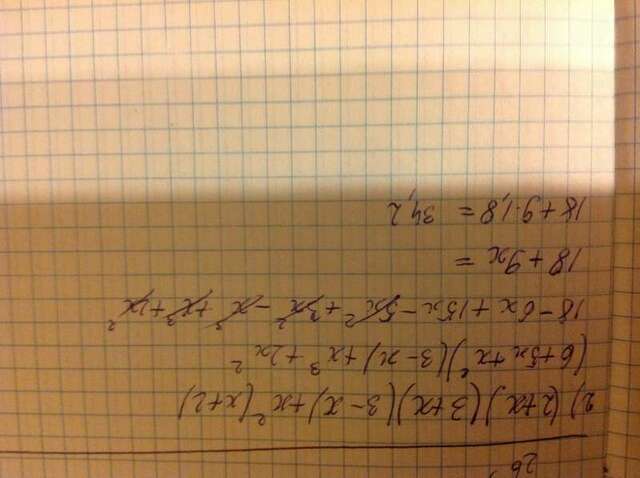 26
2) (2+x)(3+x)(3-x)+x²(x+2)
(6+5x+x²)(3-x)+x³+2x²
18-6x+15x-5x²+3x²-x³+x³+2x²
18+9x=
18+9·1,8= 34,2